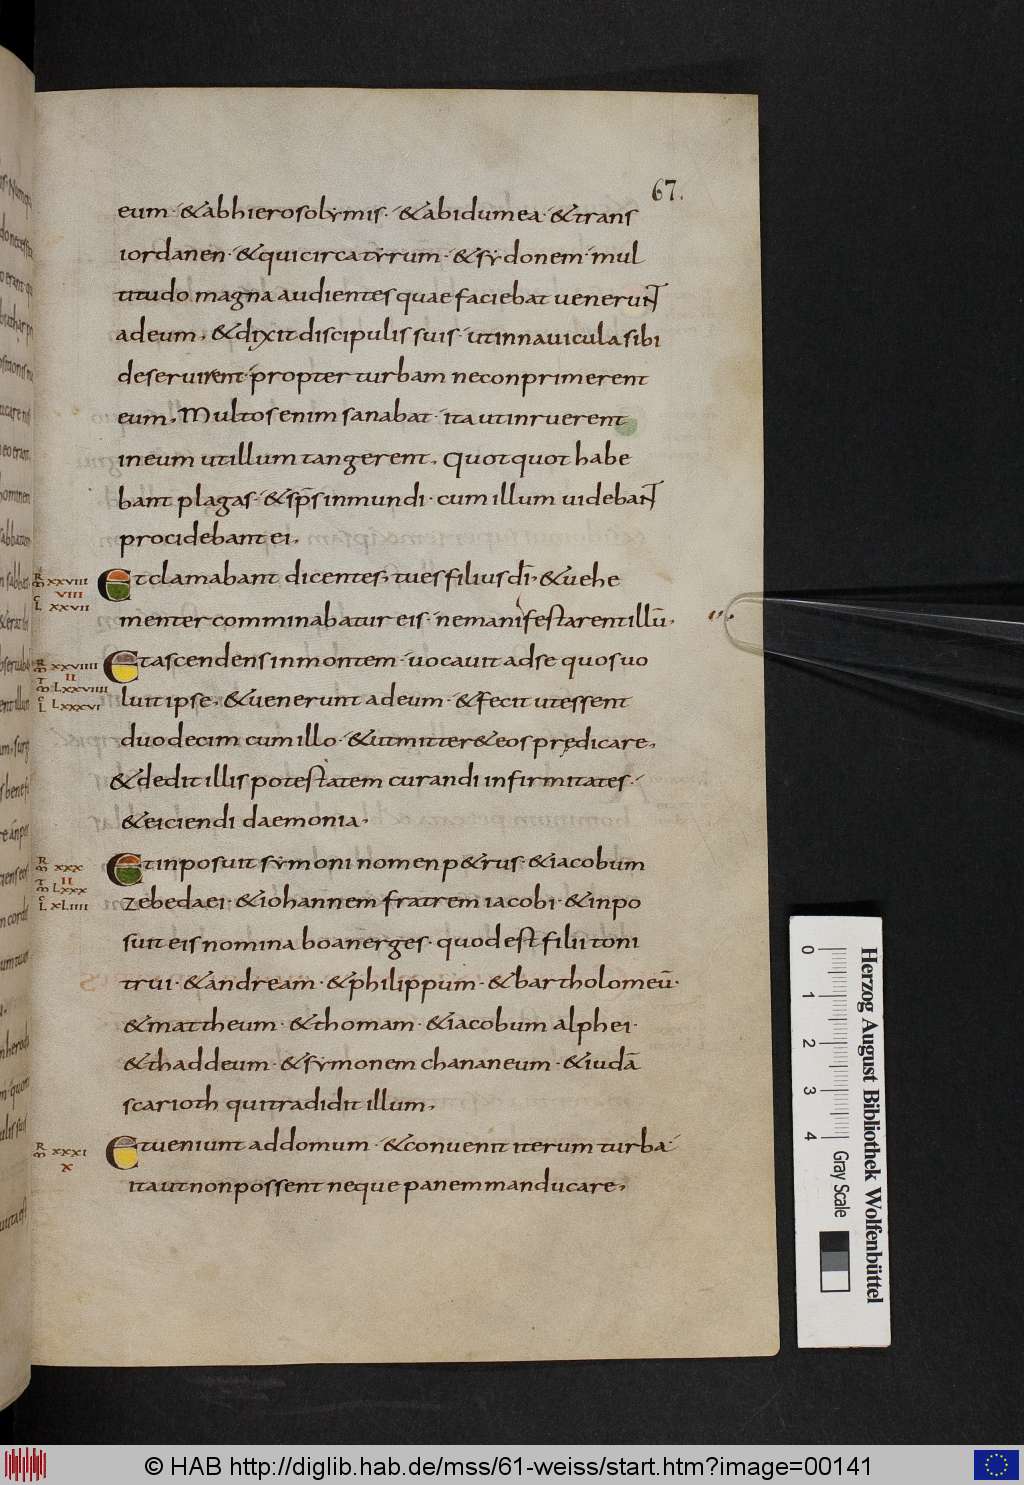 67.
eum · & abhierosolymis · & abidumea · & trans
iordanen · & quicircatyrum · & sydonem · mul
titudo magna audientesquae faciebat uenerunt
adeum, & dixit discipulis suis · utinnauicula sibi
deseruirent · propter turbam neconprimerent
eum, Multos enim sanabat · ita utinruerent
ineum utillum tangerent, Quotquot habe
bant plagas · & sp̄s inmundi · cum illum uidebant
procidebant ei,
R xxviii
Et clamabant dicentes, tues filius dī, & uehe
viii
L xxvii
menter comminabatur eis · nemanifestarentillū,
R xxviiii
Et ascendens inmontem · uocauit adse quos uo
ii
Lxxviiii
L Lxxxvi
luit ipse, & uenerunt adeum · & fecit utessent
duodecim cumillo · & utmitter& eos prędicare,
& dedit illis potestatem curandi infirmitates ·
& eiciendi daemonia,
R xxx
Et inposuit symoni nomen p&rus · & iacobum
ii
Lxxx
L xLiiii
zebedaei · & iohannem fratrem iacobi · & inpo
suit eis nomina boanerges · quodest filii toni
trui · & andream · & philippum · & bartholomeū ·
& mattheum · & thomam · & iacobum alphei ·
& thaddeum · & symonem chananeum · & iudā
scarioth quitradidit illum,
R xxxi
Et ueniunt addomum · & conuenit iterum turba ·
x
itautnonpossent neque panem manducare,
0 1 2 3 4
Gray Scale
Herzog August Bibliothek Wolfenbüttel
© HAB http://diglib.hab.de/mss/61-weiss/start.htm?image=00141